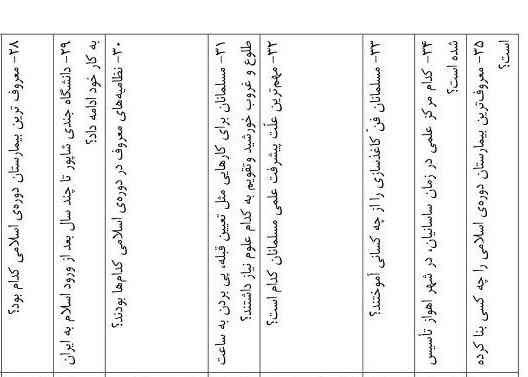 ۲۸- معروف ترین بیمارستان دوره‌ی اسلامی کدام بود؟
۲۹- دانشگاه جندی شاپور تا چند سال بعد از ورود اسلام به ایران
به کار خود ادامه داد؟
۳۰- نظامیه‌های معروف در دوره‌ی اسلامی کدام‌ها بودند؟
۳۱- مسلمانان برای کارهایی مثل تعیین قبله، پی بردن به ساعت
طلوع و غروب خورشید وتقویم به کدام علوم نیاز داشتند؟
۳۲- مهم‌ترین علّت پیشرفت علمی مسلمانان کدام است؟
۳۳- مسلمانان فن کاغذسازی را از چه کسانی آموختند؟
۳۴- کدام مرکز علمی در زمان ساسانیان، در شهر اهواز تاسیس
شده است؟
۳۵- معروف‌ترین بیمارستان دوره‌ی اسلامی را چه کسی بنا کرده
است؟